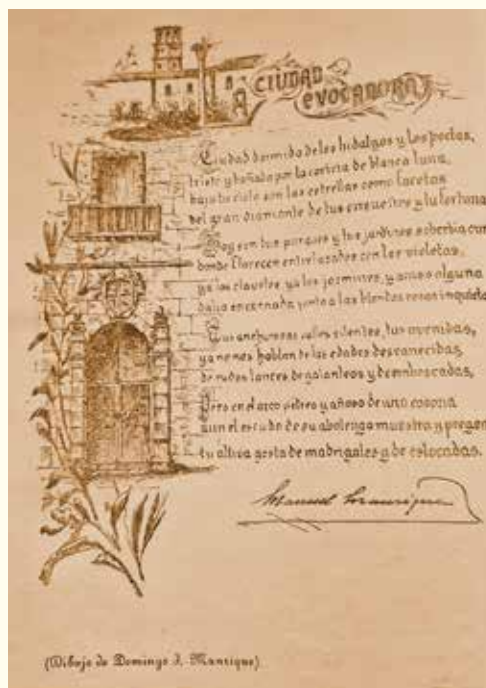 CIUDAD
EVOCADORA
Ciudad dormida de los hidalgos y los poetas,
triste y bañada por la caricia de blanca luna,
bajo tu cielo son las estrellas como facetas
del gran diamante de tus ensueños y tu fortuna
Hoy son tus parques y tus jardines soberbia cun
donde florecen entrelazados con las violetas,
ya los claveles, ya los jazmines, y acaso alguna
dalia encarnada junto a las blondas rosas inquieta
Tus anchurosas calles silentes, tus avenidas,
ya no nos hablan de las edades desvanecidas
de rudos lances de galanteos y de emboscadas,
Pero en el arco pétreo y añoso de una casona
aun el escudo de su abolengo muestra y pregon
tu altiva gesta de madrigales y de estocadas.
Manuel
(Dibujo de Domingo J. Manrique)